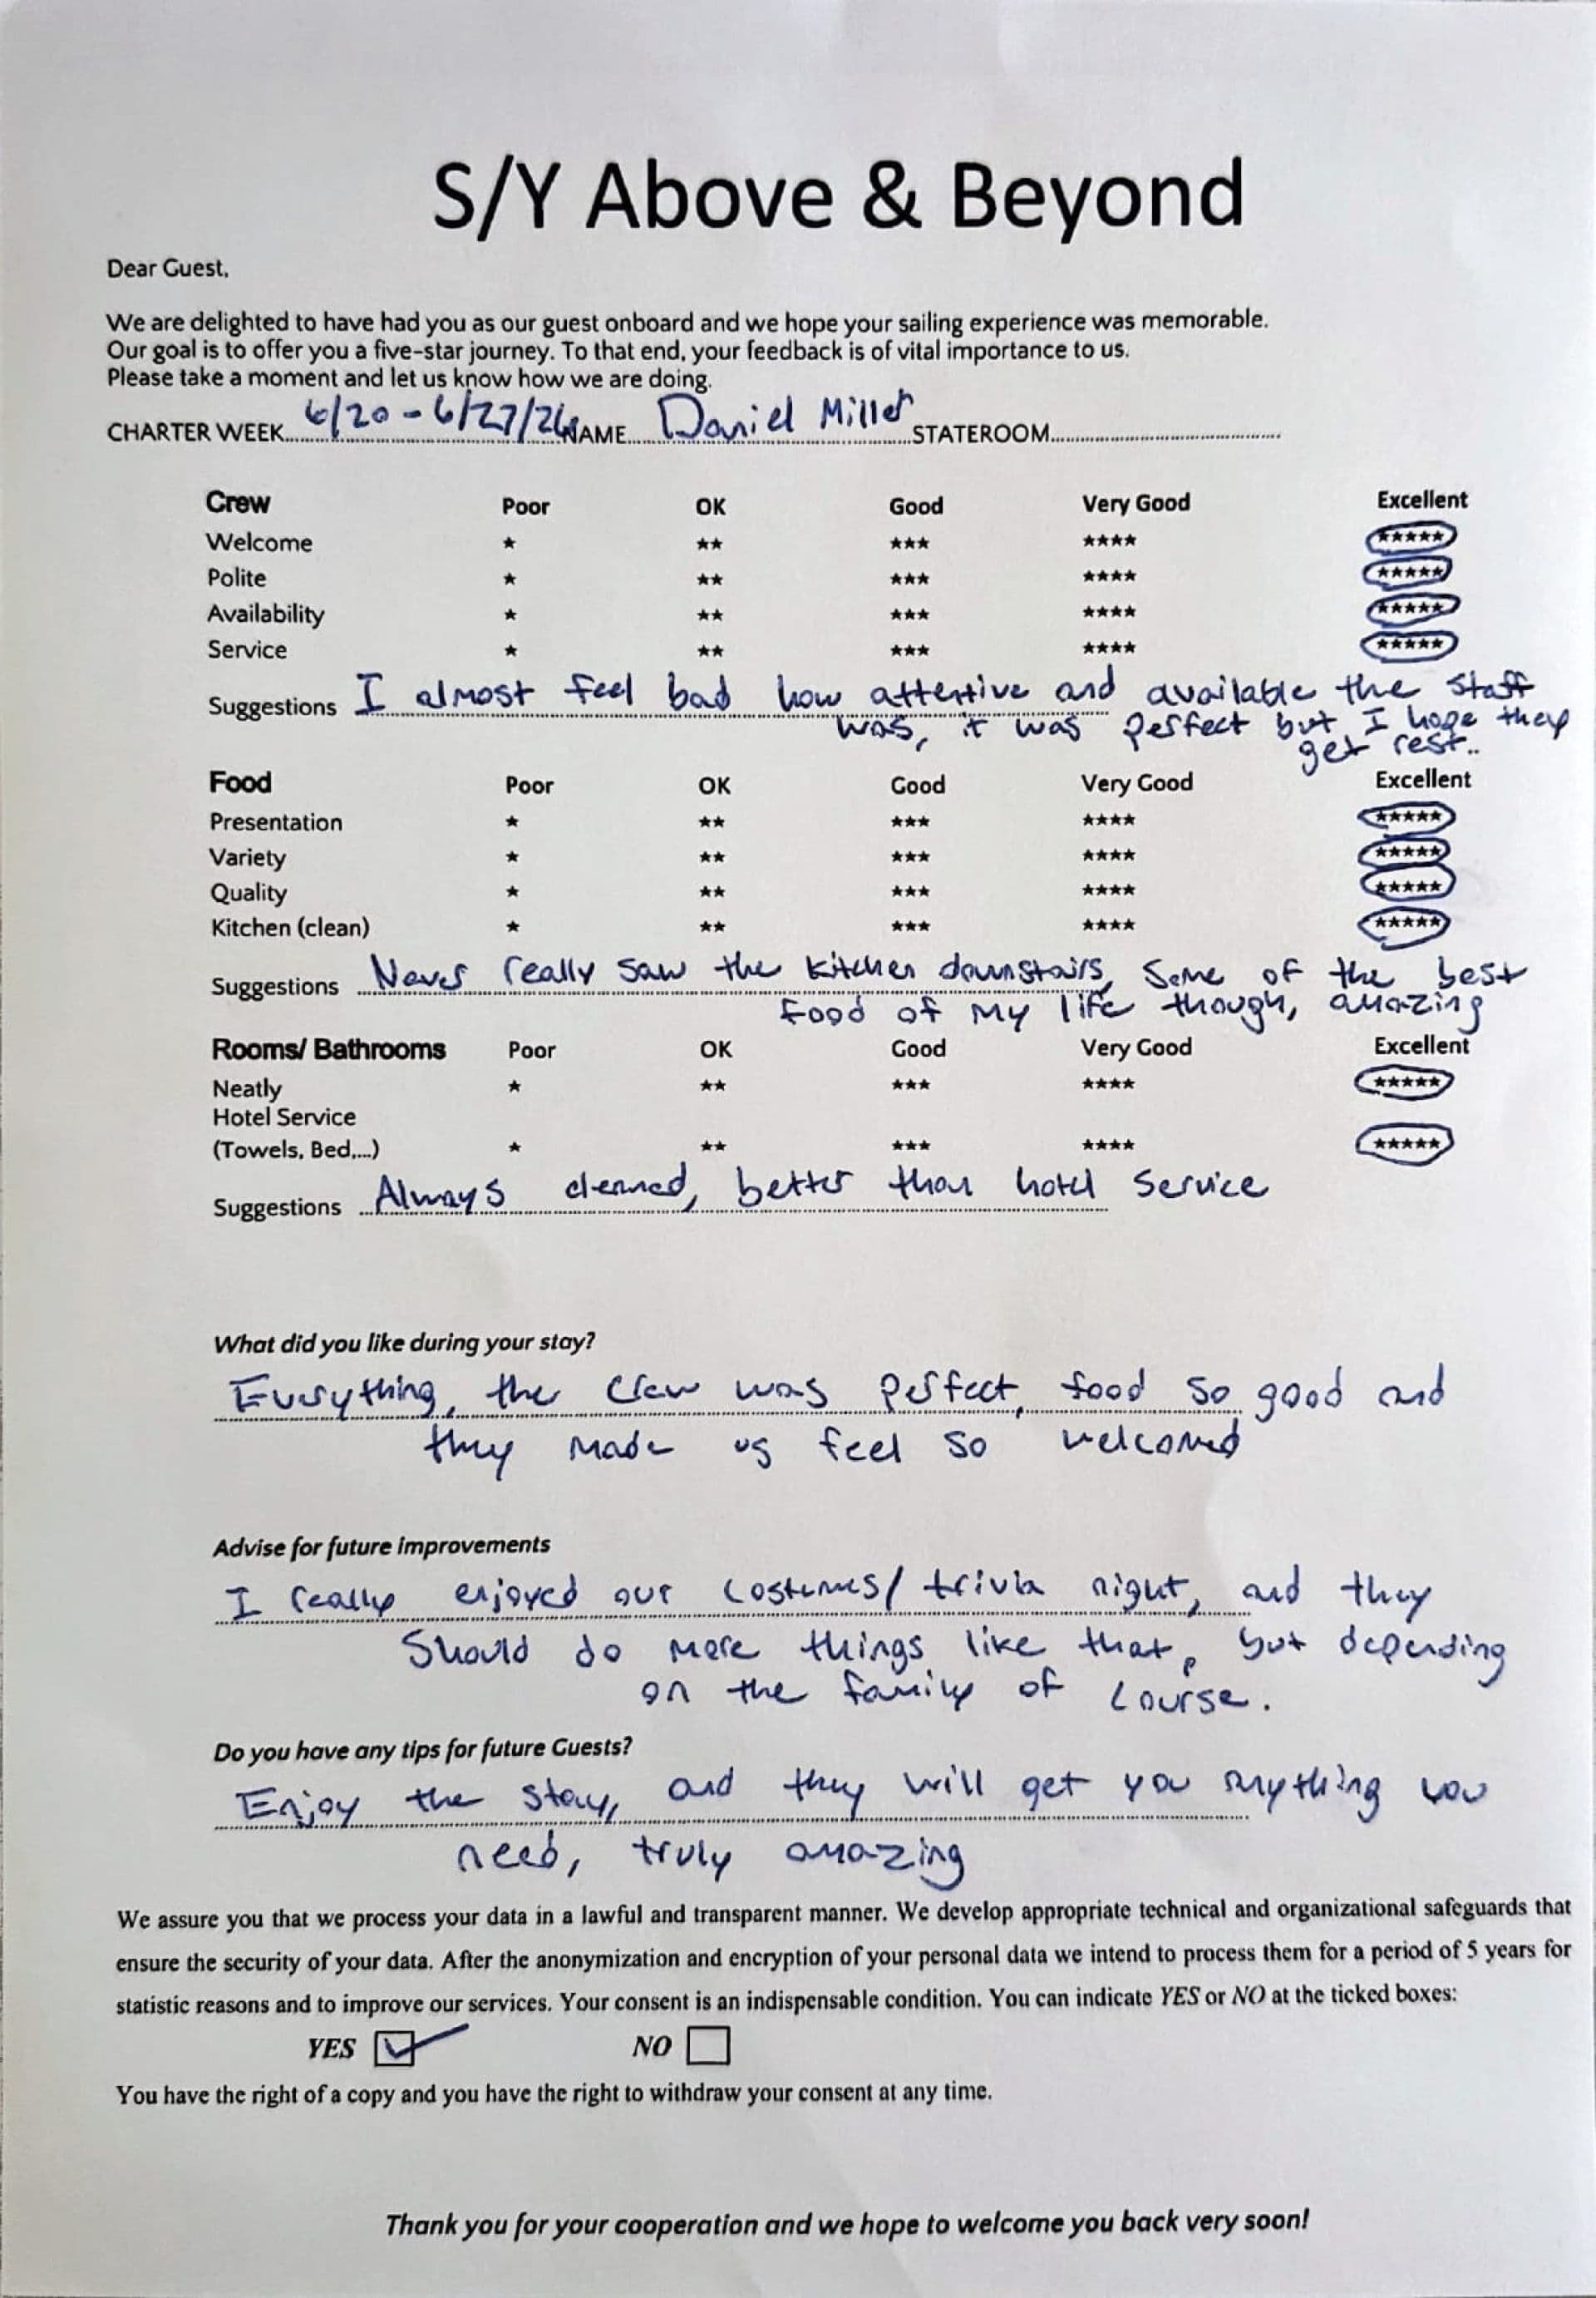 S/Y Above & Beyond
Dear Guest,
We are delighted to have had you as our guest onboard and we hope your sailing experience was memorable.
Our goal is to offer you a five-star journey. To that end, your feedback is of vital importance to us.
Please take a moment and let us know how we are doing.
CHARTER WEEK 6/20 - 6/27/26 NAME Daniel Miller STATEROOM
Crew Poor OK Good Very Good Excellent
Welcome ★ ★★ ★★★ ★★★★ ★★★★★
Polite ★ ★★ ★★★ ★★★★ ★★★★★
Availability ★ ★★ ★★★ ★★★★ ★★★★★
Service ★ ★★ ★★★ ★★★★ ★★★★★
Suggestions I almost feel bad how attentive and available the staff
was, it was perfect but I hope they
get rest..
Food Poor OK Good Very Good Excellent
Presentation ★ ★★ ★★★ ★★★★ ★★★★★
Variety ★ ★★ ★★★ ★★★★ ★★★★★
Quality ★ ★★ ★★★ ★★★★ ★★★★★
Kitchen (clean) ★ ★★ ★★★ ★★★★ ★★★★★
Suggestions Never really saw the kitchen downstairs, Some of the best
food of my life though, amazing
Rooms/ Bathrooms Poor OK Good Very Good Excellent
Neatly ★ ★★ ★★★ ★★★★ ★★★★★
Hotel Service
(Towels, Bed,...) ★ ★★ ★★★ ★★★★ ★★★★★
Suggestions Always cleaned, better than hotel service
What did you like during your stay?
Everything, the crew was perfect, food so good and
they made us feel so welcomed
Advise for future improvements
I really enjoyed our costumes/ trivia night, and they
should do more things like that, but depending
on the family of course.
Do you have any tips for future Guests?
Enjoy the stay, and they will get you anything you
need, truly amazing
We assure you that we process your data in a lawful and transparent manner. We develop appropriate technical and organizational safeguards that
ensure the security of your data. After the anonymization and encryption of your personal data we intend to process them for a period of 5 years for
statistic reasons and to improve our services. Your consent is an indispensable condition. You can indicate YES or NO at the ticked boxes:
YES NO
You have the right of a copy and you have the right to withdraw your consent at any time.
Thank you for your cooperation and we hope to welcome you back very soon!